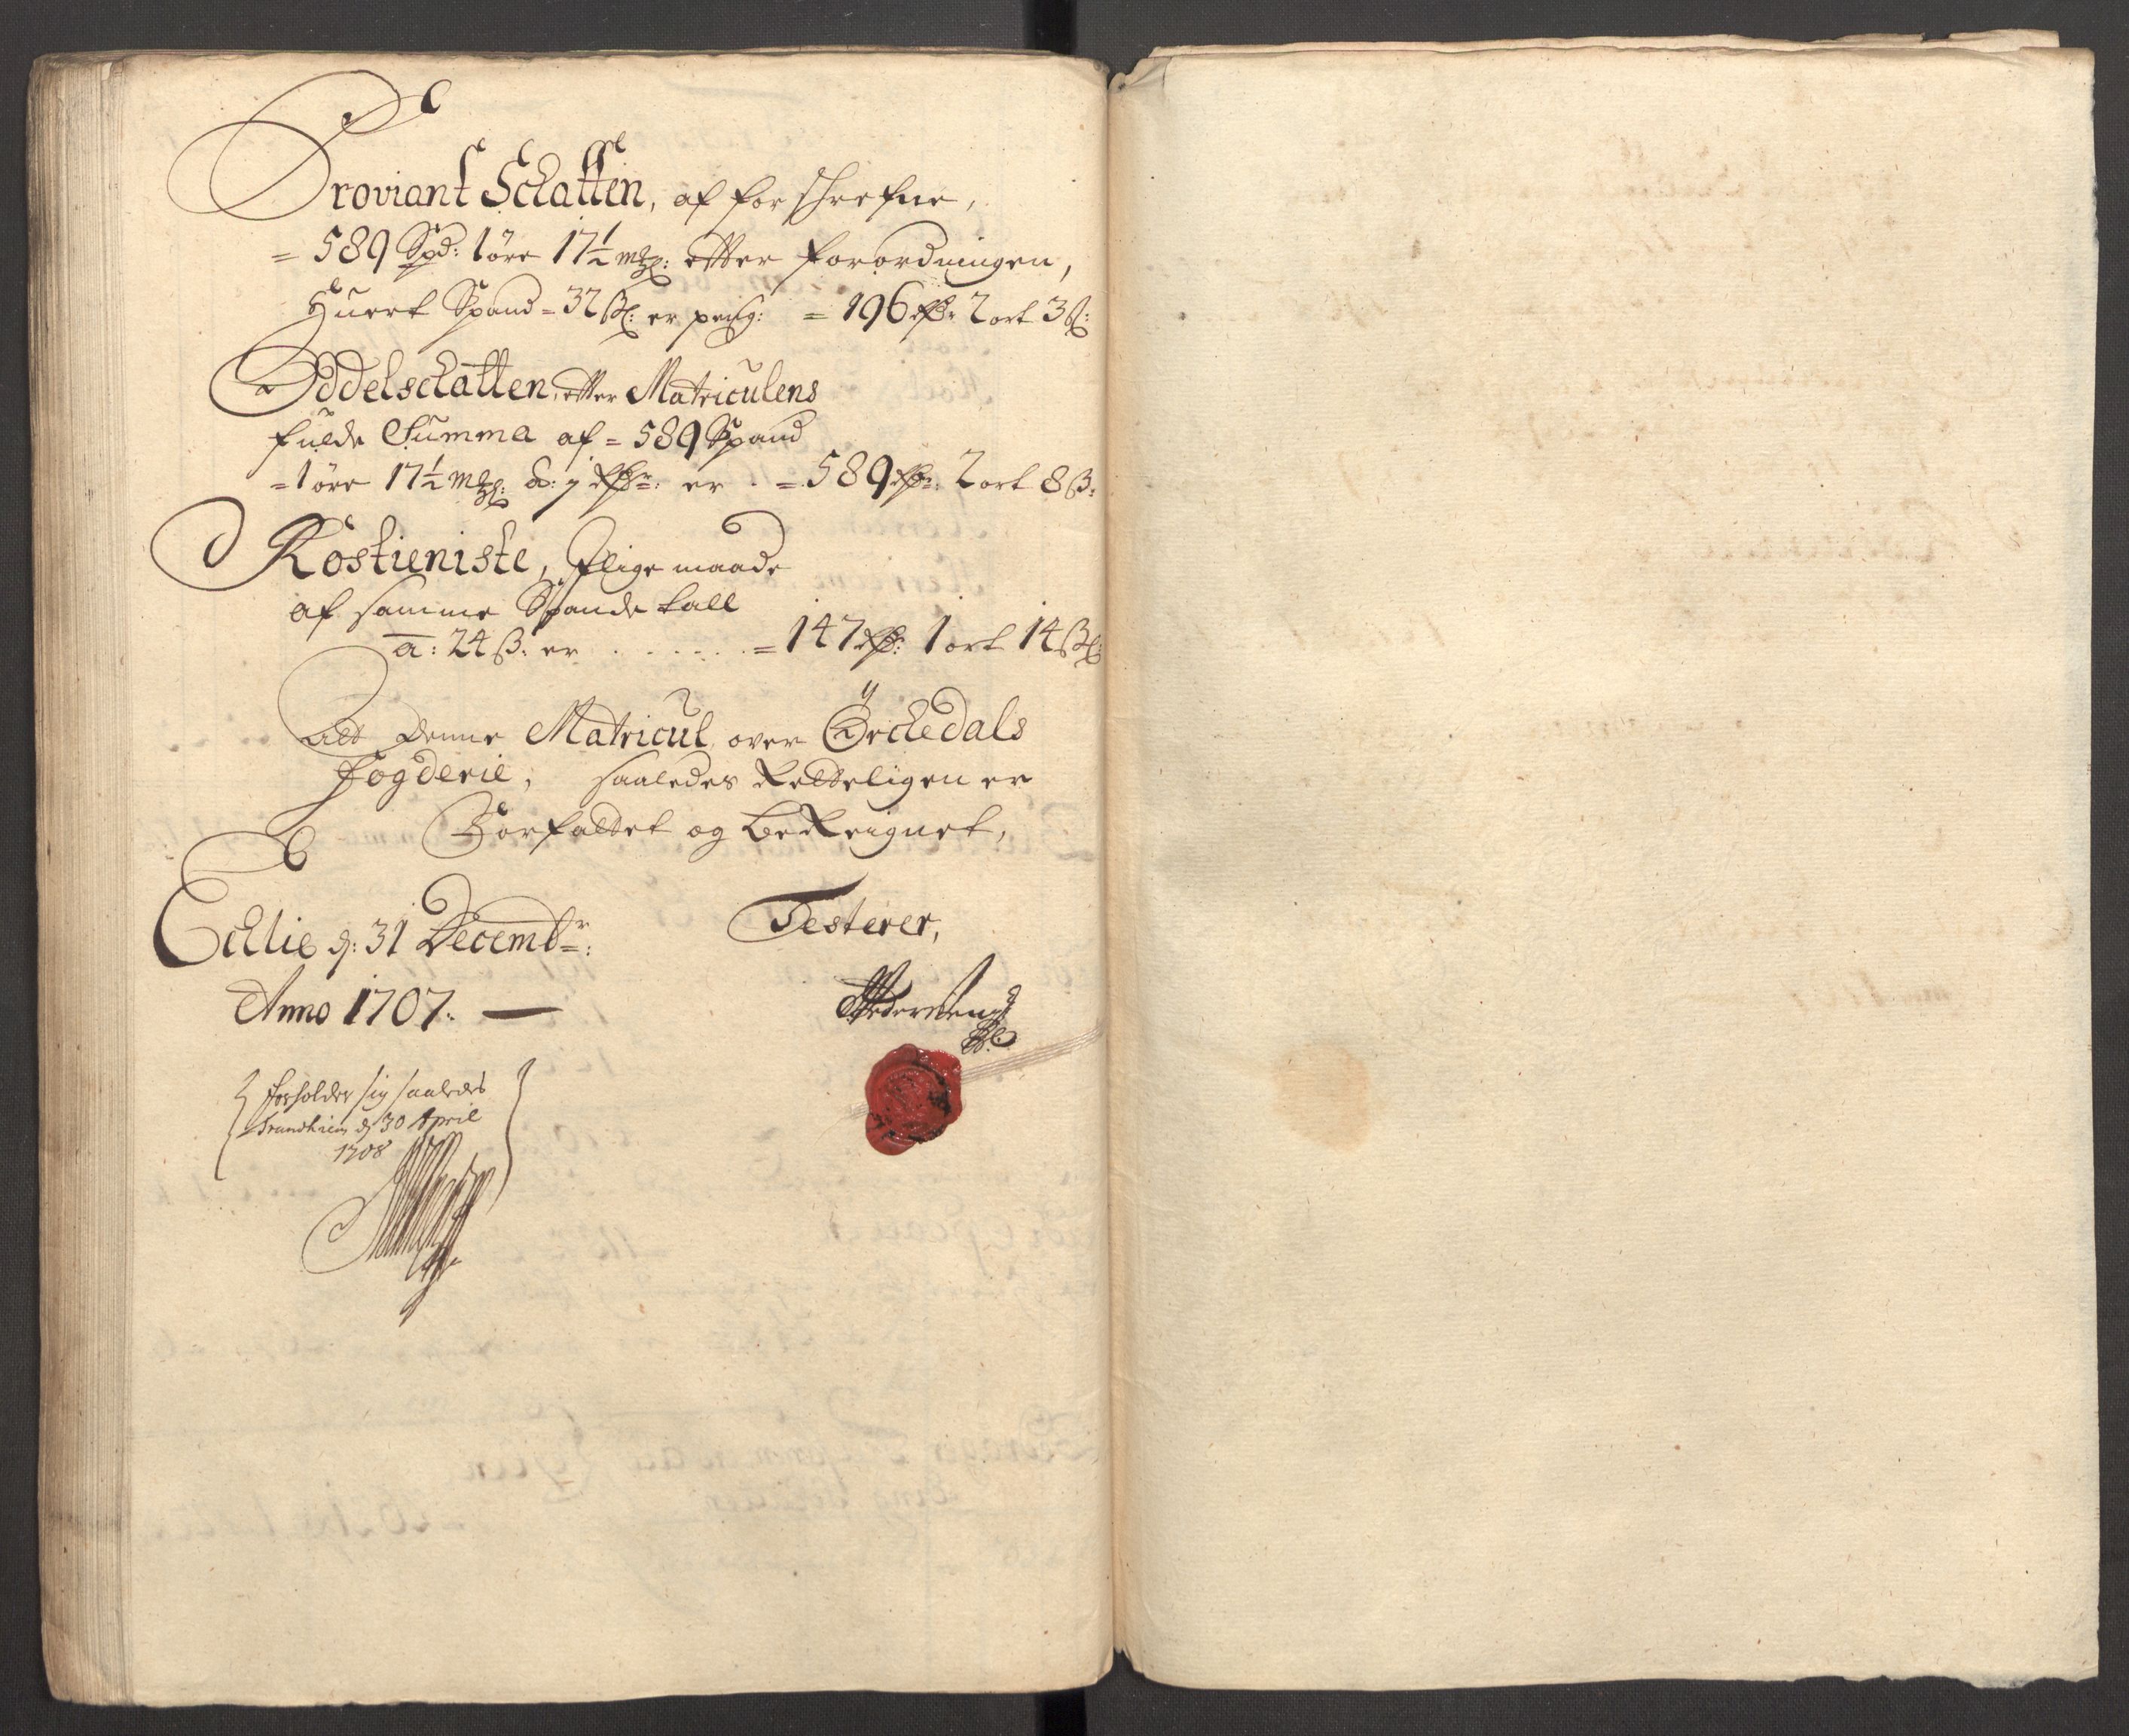 Proviant Schatten, af forschrefne,
= 589 Spd: 1 öre 17½ mkl: effter forordningen,
Huert Spand = 32 skl: er peng: = 196 rdr 2 ort 3 s:
Oddelschatten, effter Matriculens
fulde Summa af = 589 Spand
= 1 öre 17½ mkl: à: 1 rdr: er . = 589 rdr: 2 ort 8 s:
Rostieniste, j lige maade
af samme Spande tall
a: 24 s: er . . . . . . = 147 rdr: 1 ort 14 skl:
Att denne Matricul over Örchedals
fogderie, saaledes Retteligen er
Forfattet og bereignet,
Echlie d: 31 Decembr:
Testerer,
Anno 1707. —
forholder sig saaledes
Trundhiem d 30 April
1708